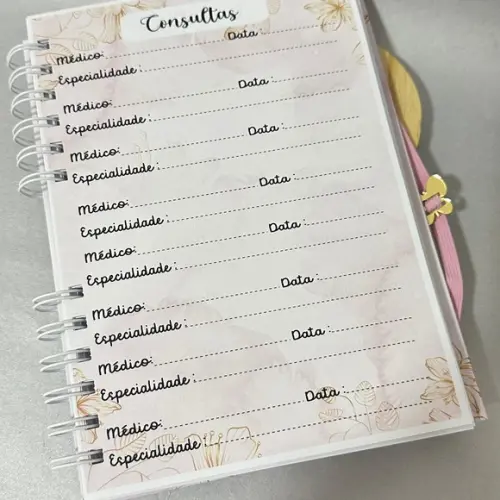 Consultas
Médico: Data :
Especialidade :
Médico: Data :
Especialidade :
Médico: Data :
Especialidade :
Médico: Data :
Especialidade :
Médico:
Especialidade :
Médico: Data :
Especialidade :
Médico: Data :
Especialidade :
Médico: Data :
Especialidade :